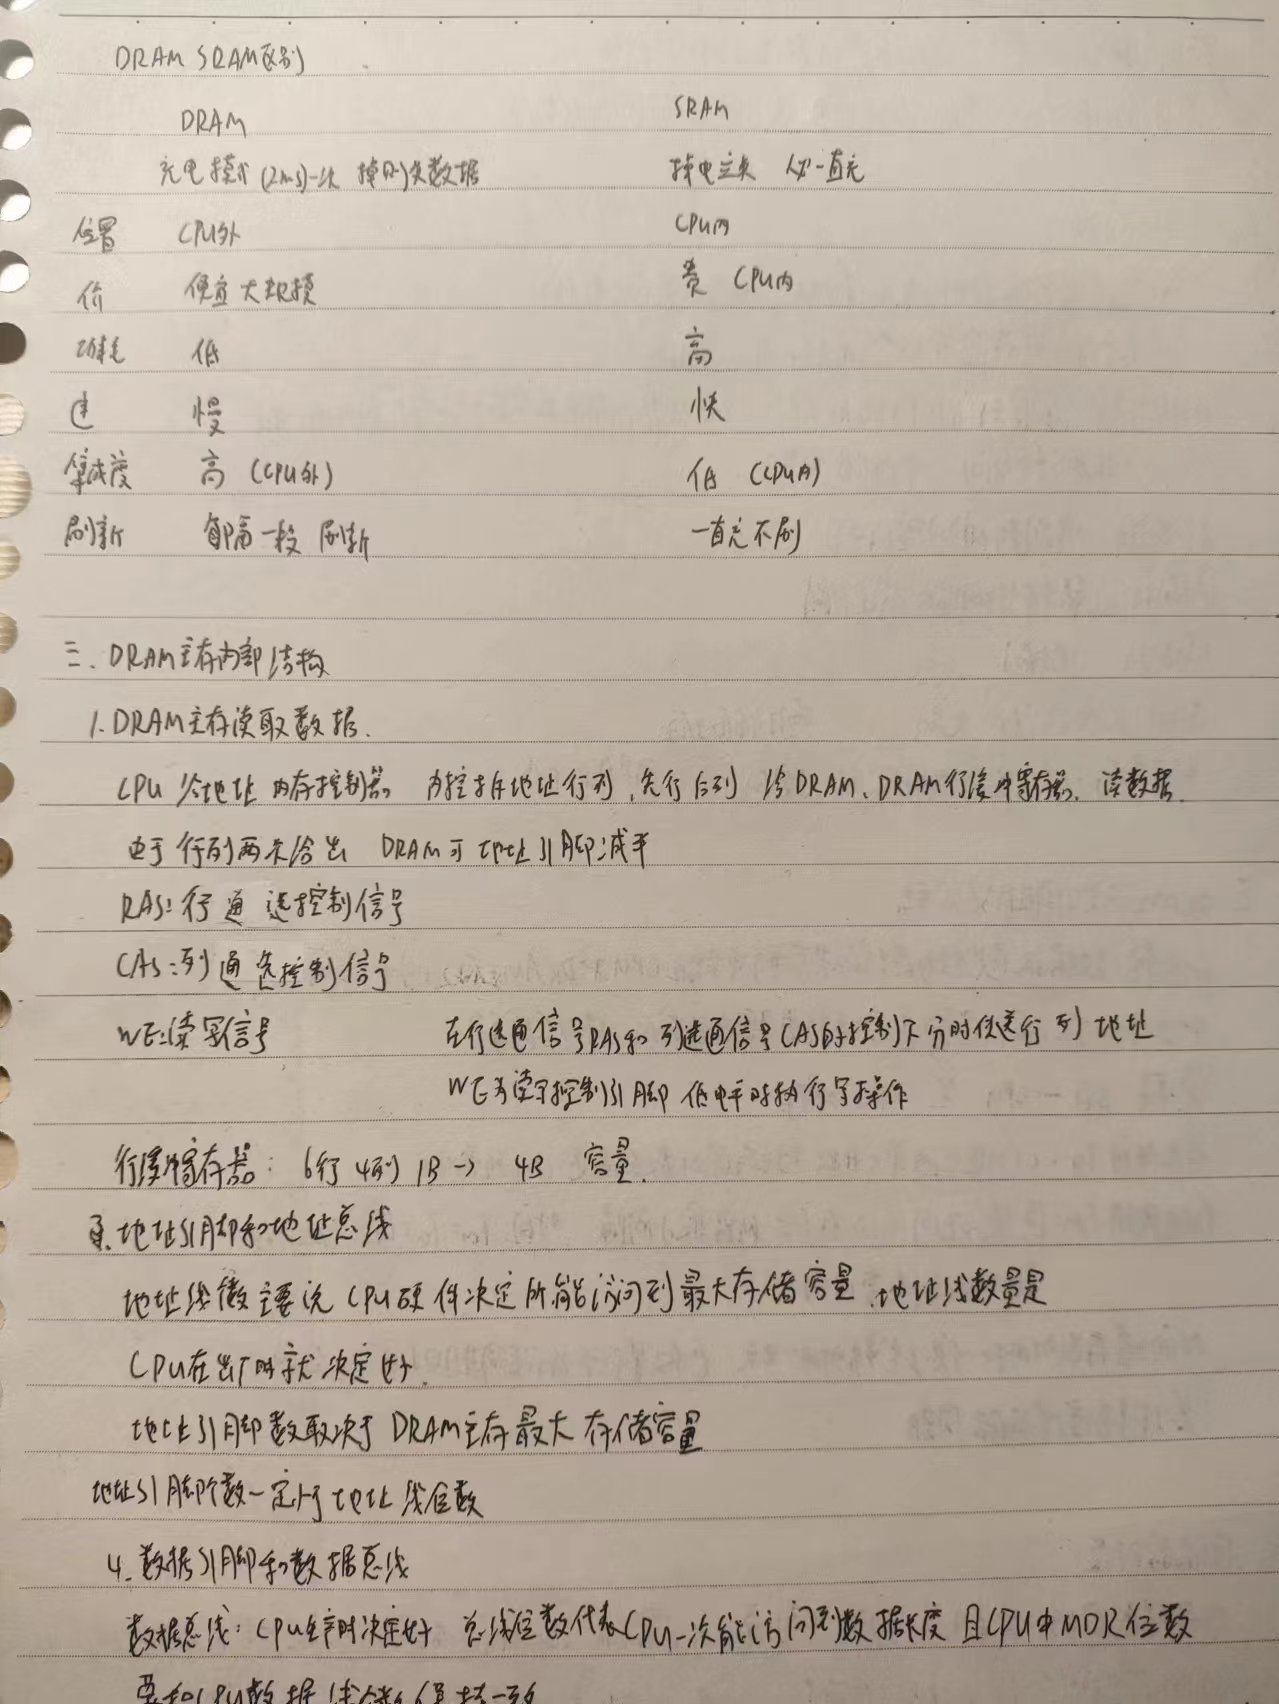 DRAM SRAM区别
DRAM SRAM
充电模式(2ms)一次 掉电丢数据 掉电立失 必一直充
位置 CPU外 CPU内
价 便宜大规模 贵 CPU内
功耗 低 高
速 慢 快
集成度 高(CPU外) 低(CPU内)
刷新 每隔一段 刷新 一直充不刷
三. DRAM主存内部结构
1. DRAM主存读取数据.
CPU 给地址 内存控制器 内控拆地址行列, 先行后列 给DRAM、DRAM行缓冲寄存器. 读数据.
由于行列两次给出 DRAM可地址引脚减半
RAS:行通选控制信号
CAS:列通选控制信号
WE:读写信号 在行选通信号RAS和列选通信号CAS的控制下分时传送行列地址
WE为读写控制引脚 低电平时执行写操作
行缓冲寄存器: 6行4列 1B -> 4B 容量.
地址引脚和地址总线
地址线数主要说CPU硬件决定所能访问到最大存储容量.地址线数量是
CPU在出厂时就决定好.
地址引脚数取决于DRAM主存最大存储容量
地址引脚个数一定小于地址线位数
4. 数据引脚和数据总线
数据总线: CPU生产时决定好 总线位数代表CPU一次能访问到数据长度 且CPU中MDR位数
要和CPU数据线位数保持一致